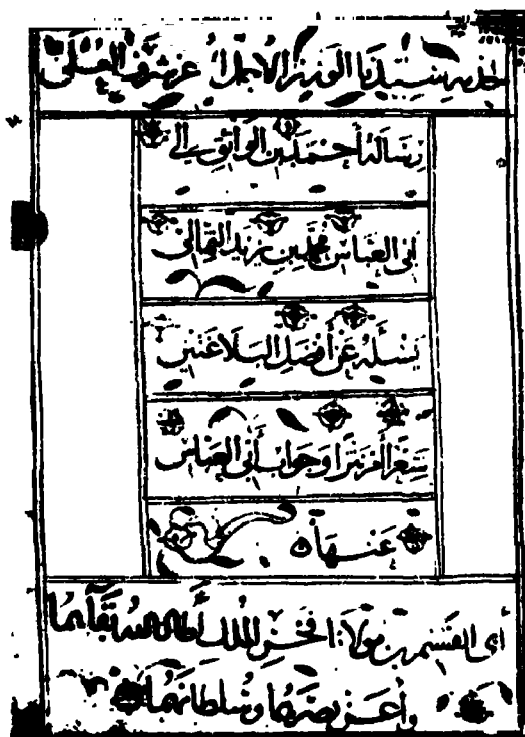 لخزانة سيدنا الوزير الأجل عز شرف العلى
رسالة أحمد بن الواثق الى
ابى العباس محمد بن يزيد الثمالى
يسئله عن أفضل البلاغتين
شعرا أم نثرا وجواب أبى العباس
عنها
أبى القسم بن مولانا فخر الملك أطال الله بقآءهما
وأعز نصرهما وسلطانهما